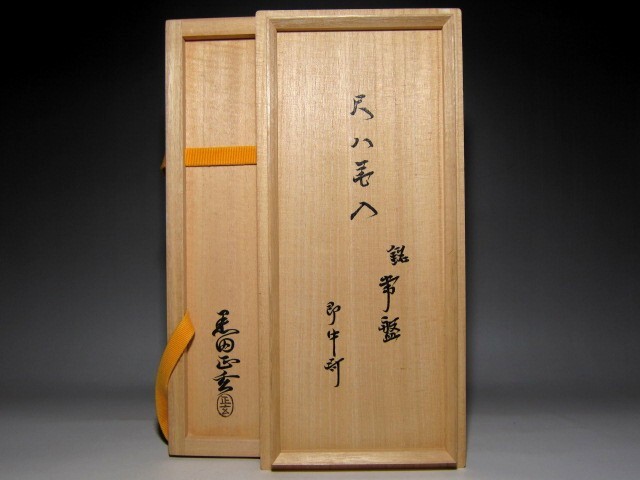 尺八花入
銘 常盤
即中斎
黒田正玄
正玄